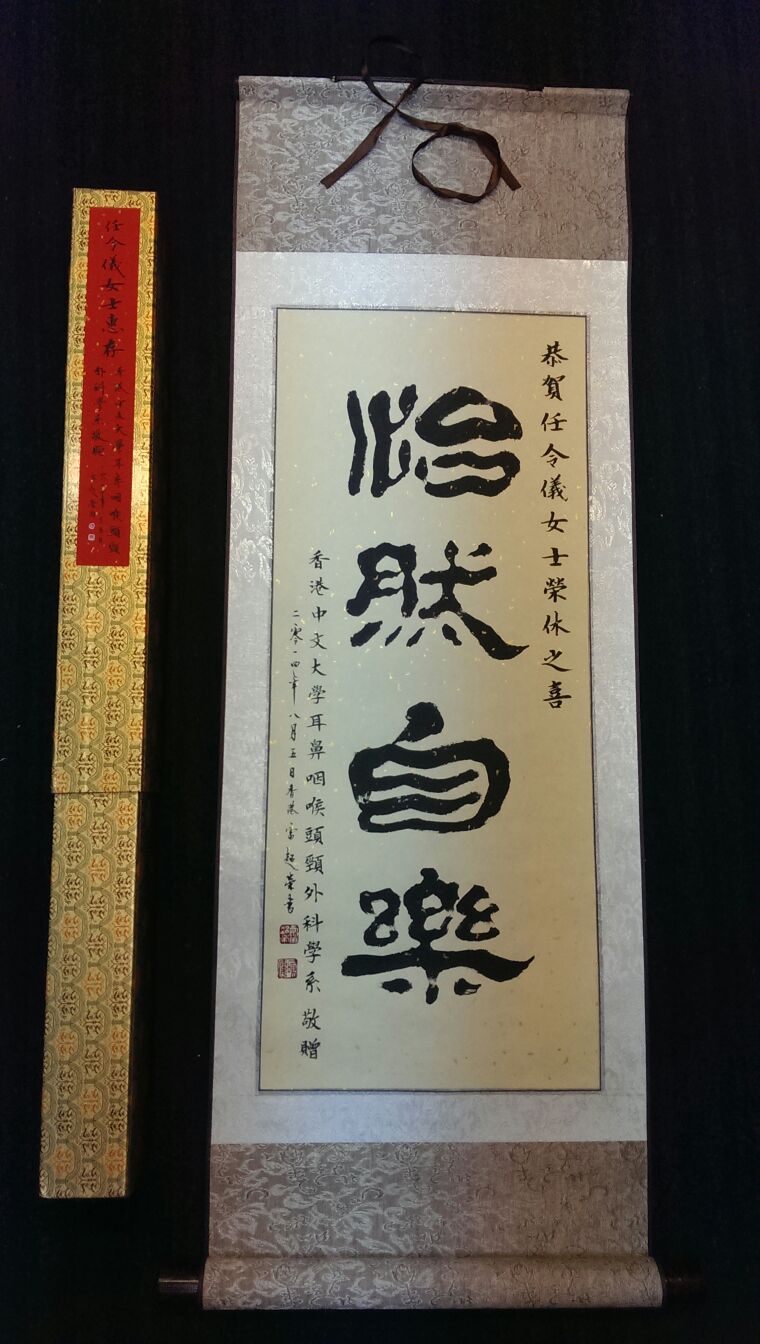 恭賀任令儀女士榮休之喜
怡然自樂
香港中文大學耳鼻咽喉頭頸外科學系 敬贈
二零一四年八月五日香港雷超榮書
任令儀女士惠存
香港中文大學耳鼻咽喉頭頸
外科學系敬贈